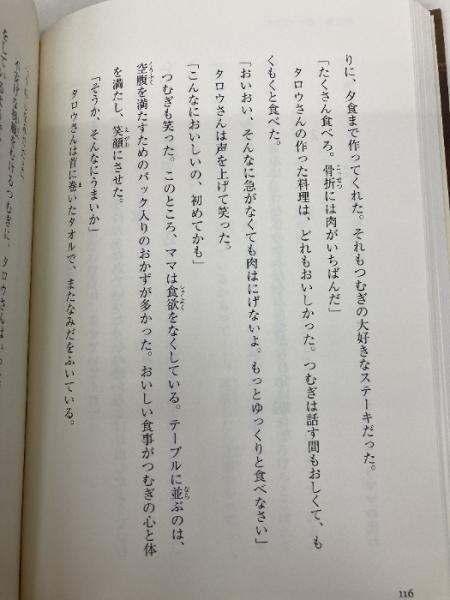 りに、夕食まで作ってくれた。それもつむぎの大好きなステーキだった。
「たくさん食べろ。骨折には肉がいちばんだ」
タロウさんの作った料理は、どれもおいしかった。つむぎは話す間もおしくて、も
くもくと食べた。
「おいおい、そんなに急がなくても肉はにげないよ。もっとゆっくりと食べなさい」
タロウさんは声を上げて笑った。
「こんなにおいしいの、初めてかも」
つむぎも笑った。このところ、ママは食欲をなくしている。テーブルに並ぶのは、
空腹を満たすためのパック入りのおかずが多かった。おいしい食事がつむぎの心と体
を満たし、笑顔にさせた。
「そうか、そんなにうまいか」
タロウさんは首に巻いたタオルで、またなみだをふいている。
116